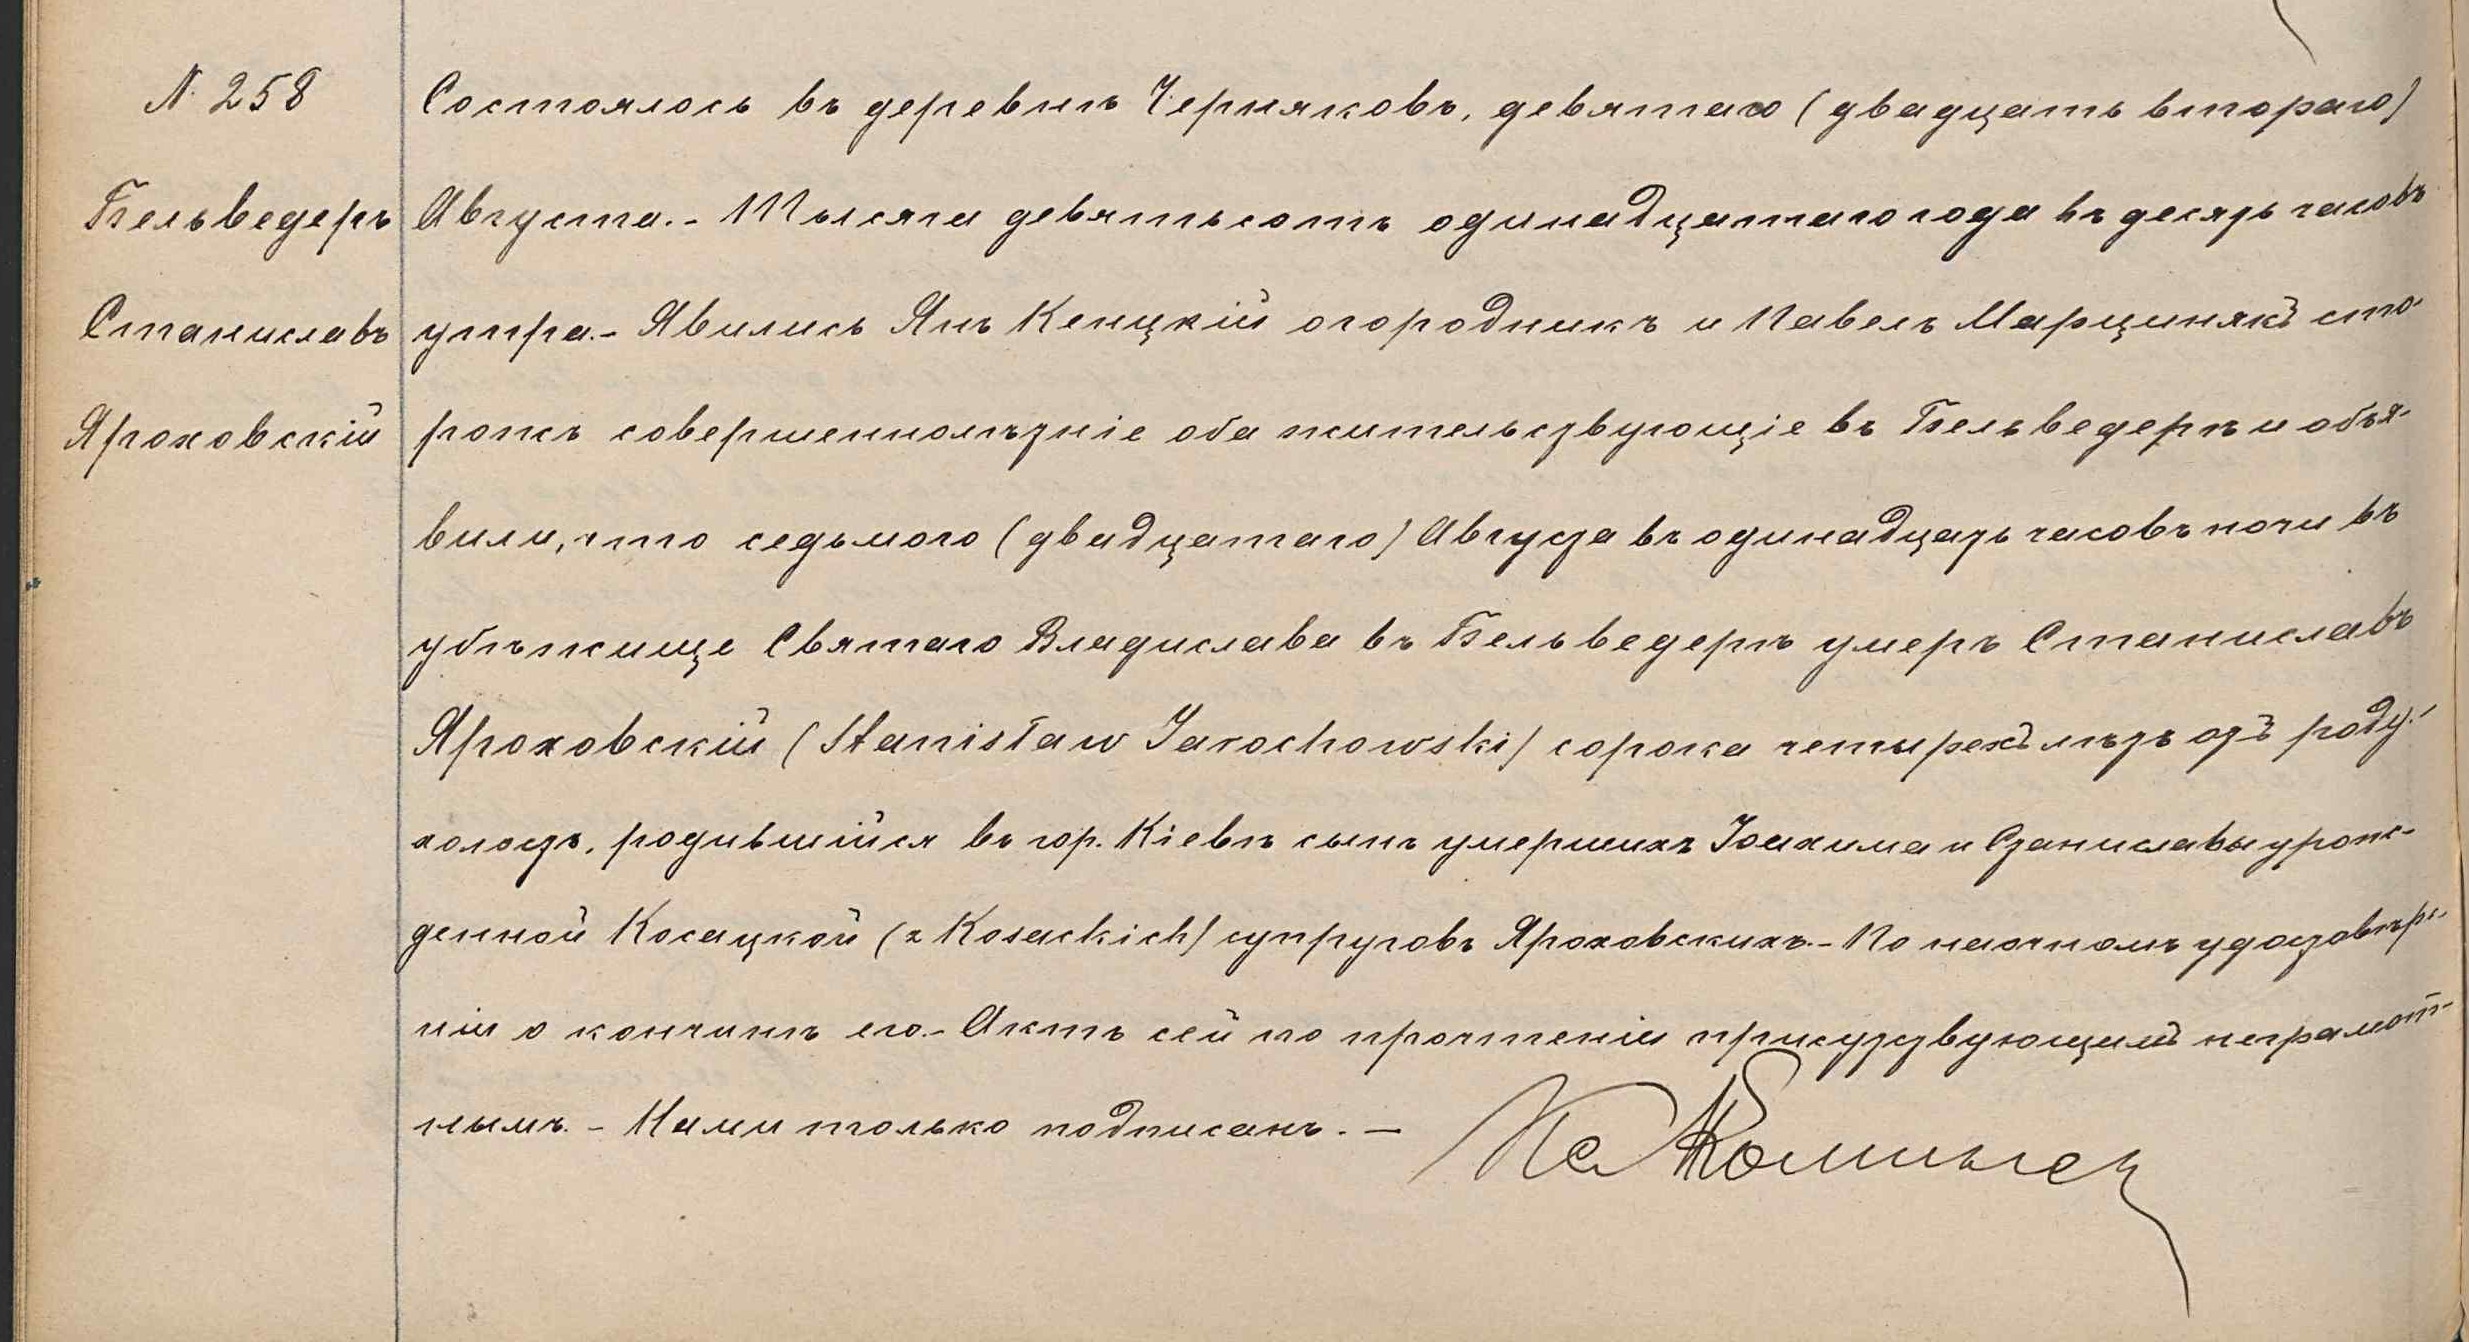 N. 258
Бельведеръ
Станиславъ
Яроховскій
Состоялось въ деревнѣ Черняковъ, девятаго (двадцать втораго)
Августа. - Тысяча девятьсотъ одинадцатаго года въ десять часовъ
утра. - Явились Янъ Кенцкій огородникъ и Павелъ Марцинякъ сто-
рожъ совершеннолѣтніе оба жительствующіе въ Бельведерѣ и объя-
вили, что седьмого (двадцатаго) Августа въ одинадцать часовъ ночи въ
убѣжище Святаго Владислава въ Бельведерѣ умеръ Станиславъ
Яроховскій (Stanisław Jarochowski) сорока четырехъ лѣтъ отъ роду
холостъ, родившійся въ гор. Кіевѣ сынъ умершихъ Іоахима и Станиславы урож-
денной Косацкой (z Kosackich) супруговъ Яроховскихъ. - По наочномъ удостовѣре-
ніи о кончинѣ его. - Актъ сей по прочтеніи присутствующимъ неграмот-
нымъ. - Нами только подписанъ. —